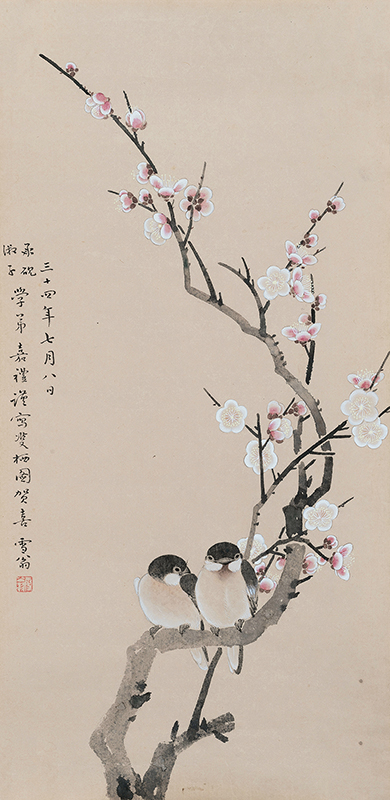 三十四年七月八日
承砚
淑子
学弟嘉禮謹寫雙栖図贺喜 雪翁